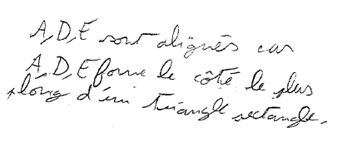 A, D, E sont alignés car
A, D, E forme le côté le plus
long d'un triangle rectangle.